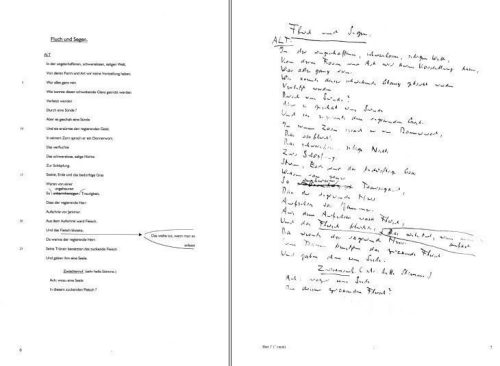 Fluch und Segen.
ALT
In der ungeschaffenen, schwerelosen, seligen Welt,
Von deren Form und Art wir keine Vorstellung haben,
5
War alles ganz rein.
Wie konnte dieser schwebende Glanz getrübt werden
Verletzt werden
Durch eine Sünde?
Aber es geschah eine Sünde
10
Und sie erzürnte den regierenden Geist.
In seinem Zorn sprach er ein Donnerwort.
Das verfluchte
Das schwerelose, selige Nichts
Zur Schöpfung.
15
Steine, Erde und das bedürftige Gras
Waren von einer
ungeheueren
Traurigkeit,
Dass der regierende Herr
Aufschrie vor Jammer.
20
Aus dem Aufschrei ward Fleisch.
Und das Fleisch blutete.
Das siehst du, wenn man es
Da weinte der regierende Herr.
25
Seine Tränen benetzten das zuckende Fleisch
Und gaben ihm eine Seele.
Zwischenruf (sehr helle Stimme:)
Ach: wozu eine Seele
In diesem zuckenden Fleisch?
6
Fluch und Segen.
ALT:
In der ungeschaffenen, schwerelosen, seligen Welt,
Von deren Form und Art wir keine Vorstellung haben,
War alles ganz rein.
Wie konnte dieser schwebende Glanz getrübt werden
Verletzt werden
Durch eine Sünde?
Aber es geschah eine Sünde
Und sie erzürnte den regierenden Geist.
In seinem Zorn sprach er ein Donnerwort,
Das verfluchte
Das schwerelose, selige Nichts
Zur Schöpfung.
Steine, Erde und das bedürftige Gras
Waren von
So Traurigkeit,
Dass der regierende Herr
Aufschrie vor Jammer.
Aus dem Aufschrei ward Fleisch,
Und das Fleisch blutete.
Da weinte der regierende Herr.
Seine Tränen benetzten das zuckende Fleisch
Und gaben ihm eine Seele.
Zwischenruf (sehr helle Stimme:)
Ach: wozu eine Seele
In diesem zuckenden Fleisch?
7